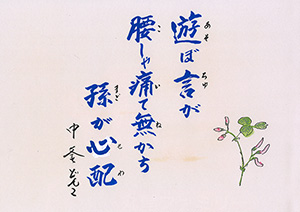 遊ぼ言が
腰しゃ痛て無かち
孫が心配